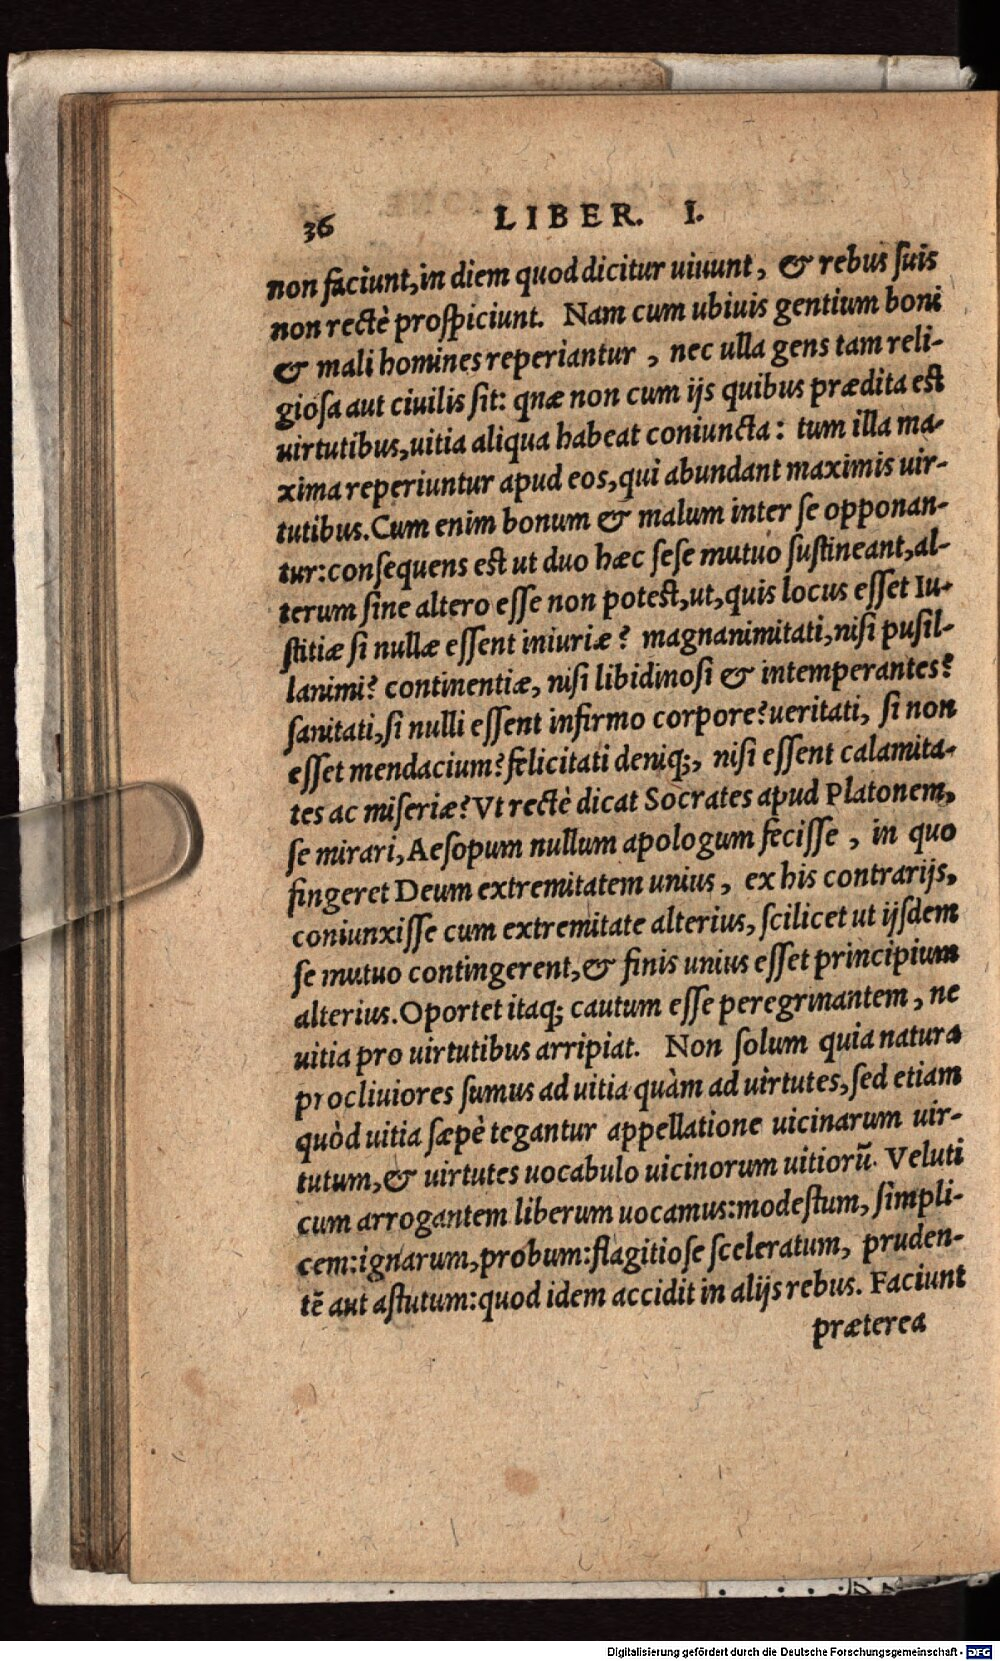 36 LIBER. I.
non faciunt, in diem quod dicitur uiuunt, & rebus ſuis
non rectè proſpiciunt. Nam cum ubiuis gentium boni
& mali homines reperiantur, nec ulla gens tam reli-
gioſa aut ciuilis ſit: qnæ non cum ijs quibus prædita eſt
uirtutibus, uitia aliqua habeat coniuncta: tum illa ma-
xima reperiuntur apud eos, qui abundant maximis uir-
tutibus. Cum enim bonum & malum inter ſe opponan-
tur: conſequens eſt ut duo hæc ſeſe mutuo ſuſtineant, al-
terum ſine altero eſſe non poteſt, ut, quis locus eſſet Iu-
ſtitiæ ſi nullæ eſſent iniuriæ? magnanimitati, niſi puſil-
lanimi? continentiæ, niſi libidinoſi & intemperantes?
ſanitati, ſi nulli eſſent infirmo corpore? ueritati, ſi non
eſſet mendacium? felicitati deniq;, niſi eſſent calamita-
tes ac miſeriæ? Vt rectè dicat Socrates apud Platonem,
ſe mirari, Aeſopum nullum apologum feciſſe, in quo
fingeret Deum extremitatem unius, ex his contrarijs,
coniunxiſſe cum extremitate alterius, ſcilicet ut ijſdem
ſe mutuo contingerent, & finis unius eſſet principium
alterius. Oportet itaq; cautum eſſe peregrinantem, ne
uitia pro uirtutibus arripiat. Non ſolum quia natura
procliuiores ſumus ad uitia quàm ad uirtutes, ſed etiam
quòd uitia ſæpè tegantur appellatione uicinarum uir-
tutum, & uirtutes uocabulo uicinorum uitiorũ. Veluti
cum arrogantem liberum uocamus: modeſtum, ſimpli-
cem: ignarum, probum: flagitioſe ſceleratum, pruden-
tẽ aut aſtutum: quod idem accidit in alijs rebus. Faciunt
præterea
Digitalisierung gefördert durch die Deutsche Forschungsgemeinschaft - DFG